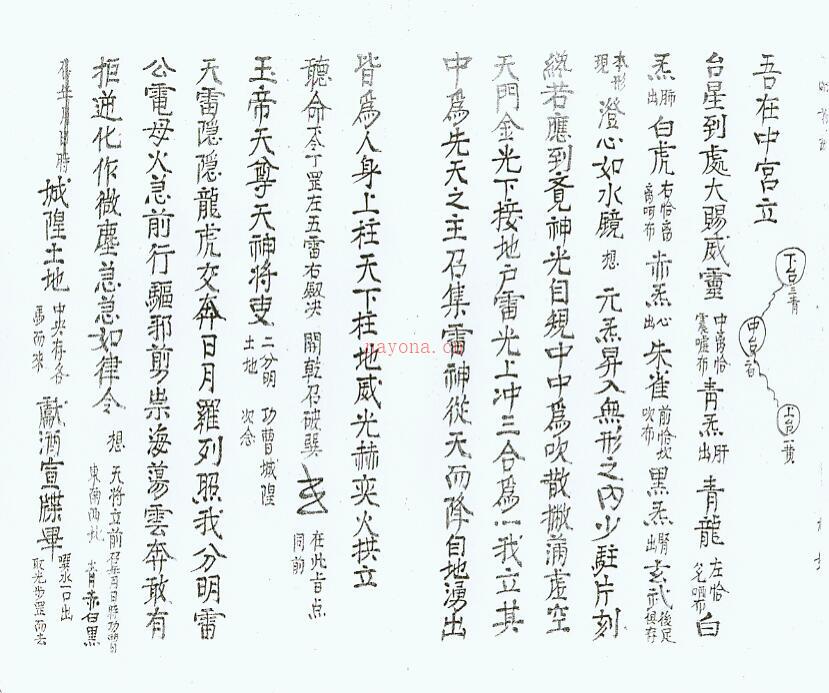 吾在中宮立
下台 青
中台
上台 黄
台星到處大賜威靈 中宮恰 震噓布 青炁出 肝 青龍 左恰 布 白
炁出 肺 白虎 右恰 布 赤炁出 心 朱雀 前恰坎 吹布 黑炁出 腎 玄武 後足
本形現 澄心如水鏡 想 元炁昇入無形之內少駐片刻
總若應到 神光自現中中為吹散撒滿虛空
天門金光下接地戶雷光上冲三合為一我立其
中為先天之主召集雷神從天而降自地湧出
皆為人身上柱天下柱地威光赫奕火拱立
聽命 下令丁罡左五雷右殿決 開乾召破巽 在此旨点 同前
玉帝天尊天神將吏 二分明 土地 功曹城隍 次念
天雷隱隱龍虎交奔日月羅列照我分明雷
公電母火急前行驅邪剪祟海蕩雲奔敢有
拒逆化作微塵急急如律令 想 天將立前 東南西北 青赤白黑
年月日時 城隍土地 中央存各 獻酒宣牒畢 噀水一口出 罡而去
nayona.com